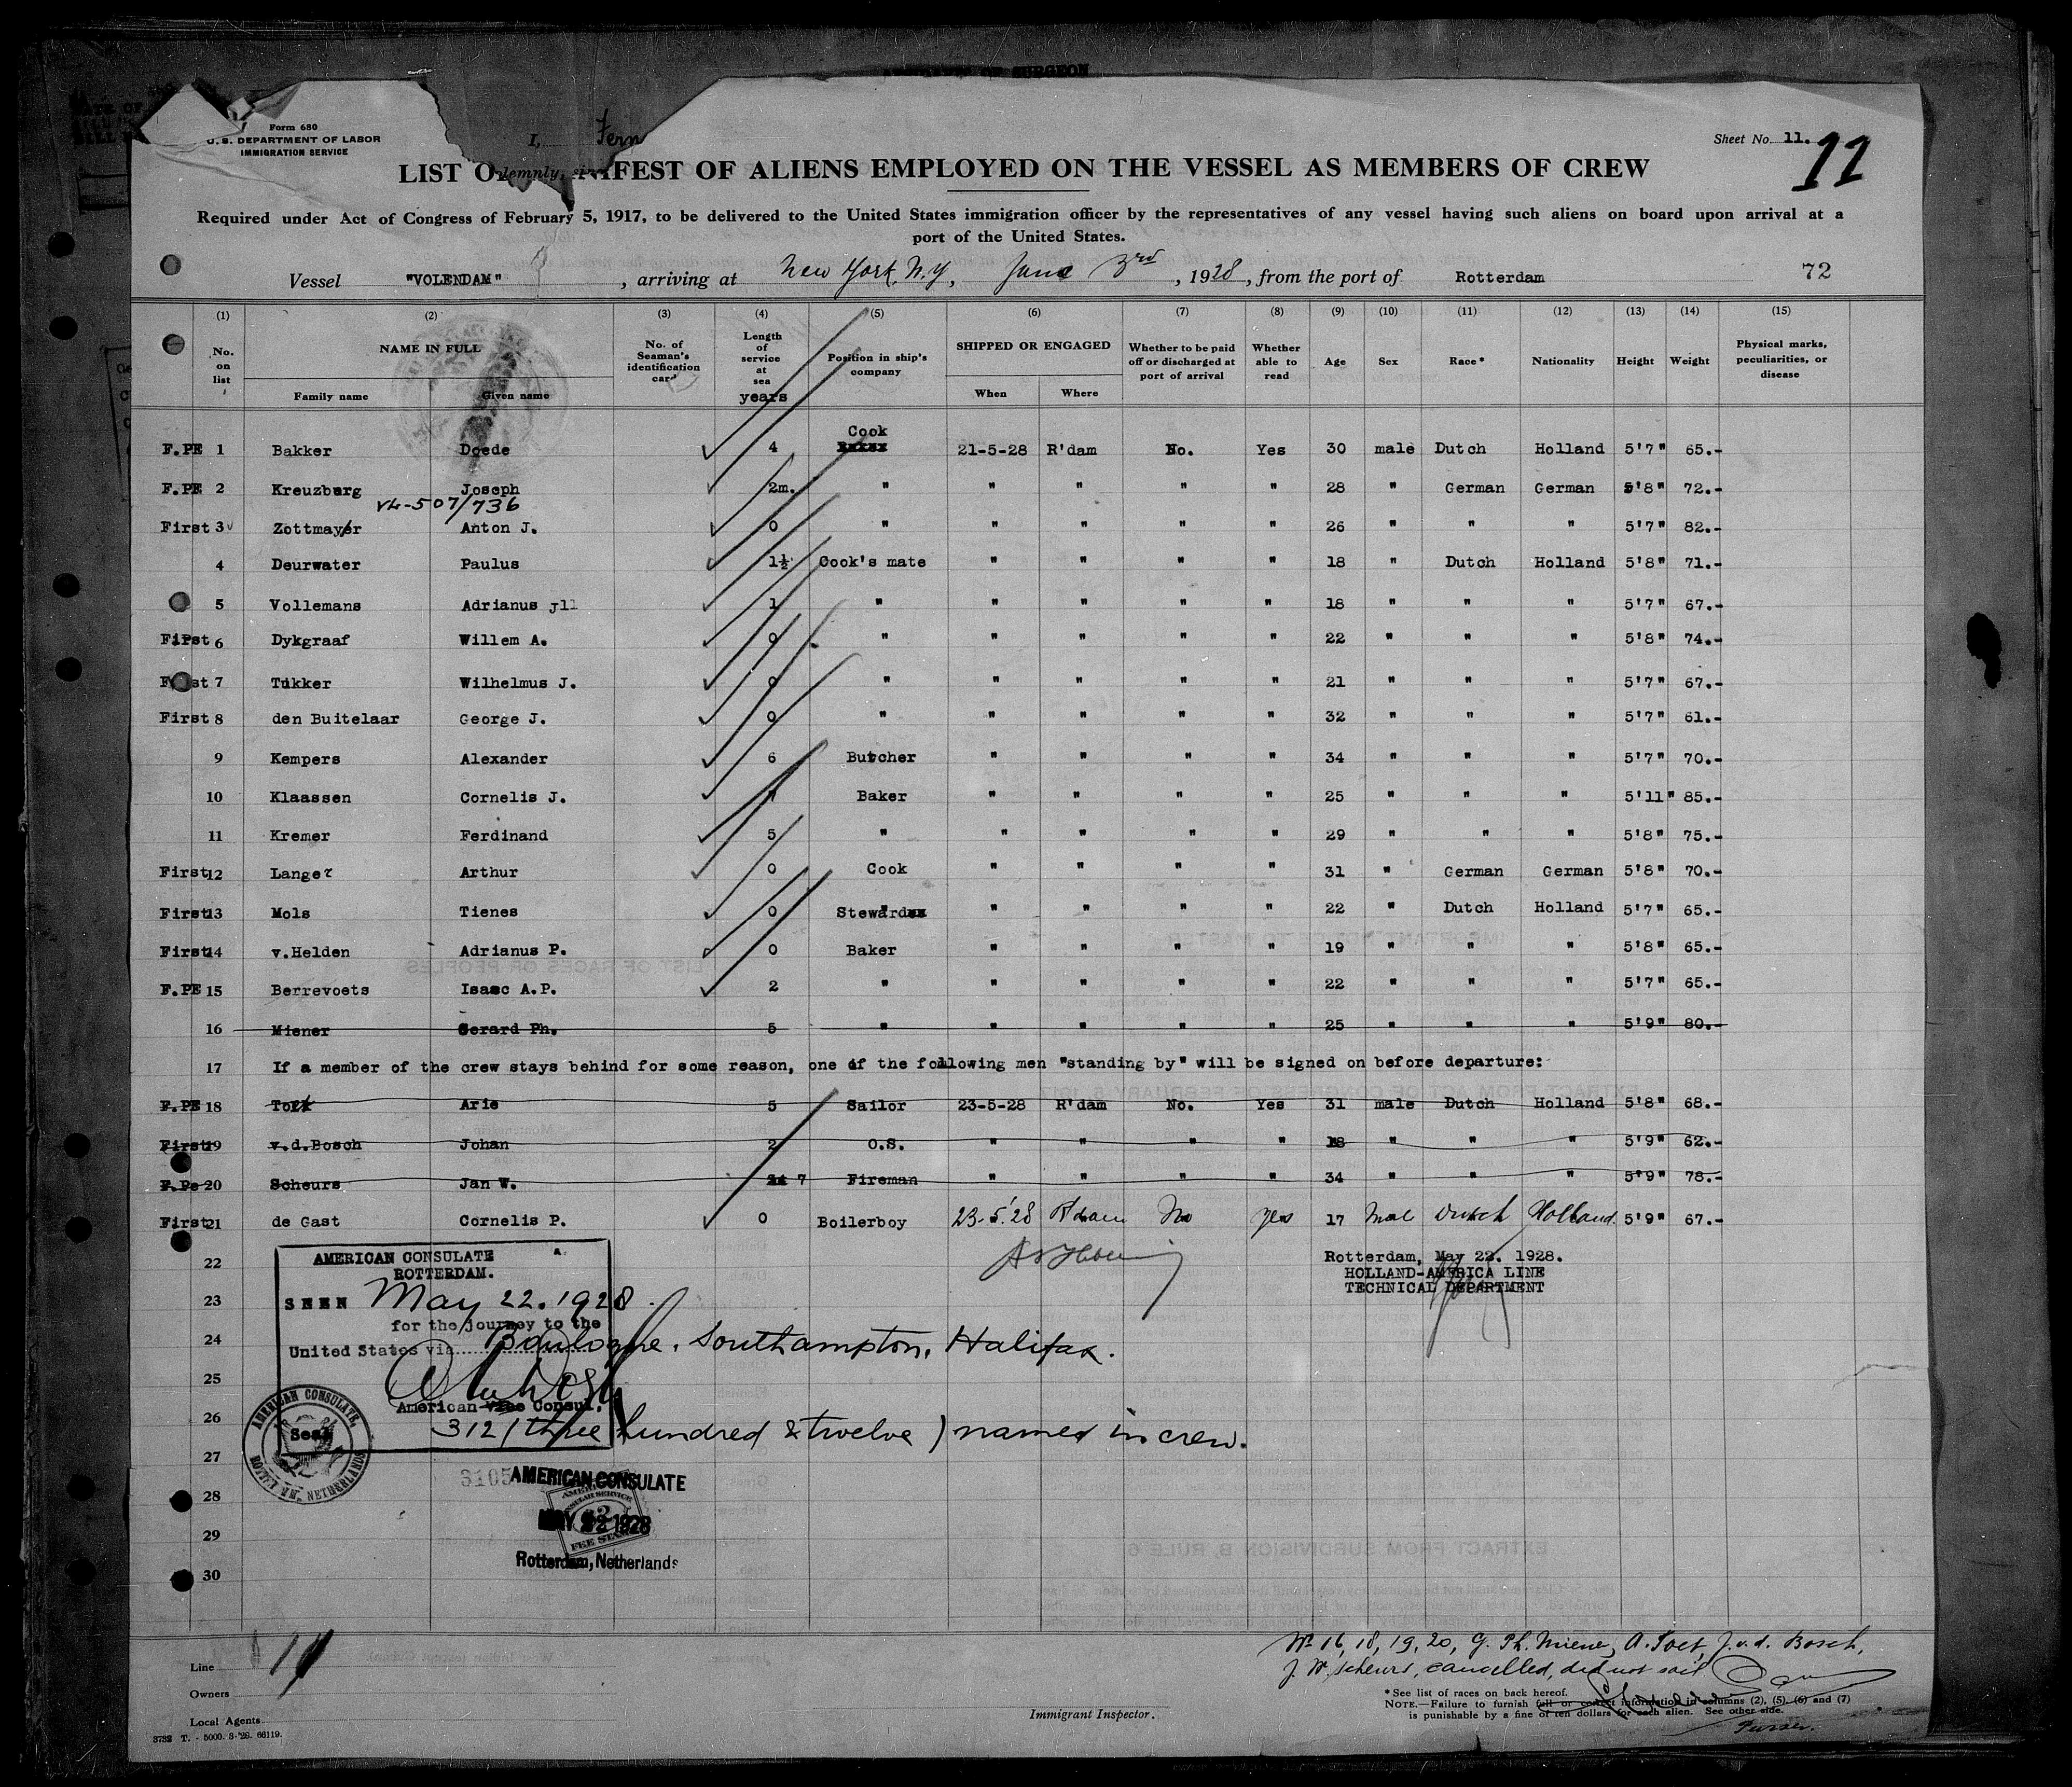 Form 680
U. S. DEPARTMENT OF LABOR
IMMIGRATION SERVICE
I, Fern
Sheet No. 11.
11
LIST O IFEST OF ALIENS EMPLOYED ON THE VESSEL AS MEMBERS OF CREW
Required under Act of Congress of February 5, 1917, to be delivered to the United States immigration officer by the representatives of any vessel having such aliens on board upon arrival at a
port of the United States.
Vessel "VOLENDAM", arriving at New York, N.Y., June 3rd, 1928, from the port of Rotterdam 72
(1) (2) (3) (4) (5) (6) (7) (8) (9) (10) (11) (12) (13) (14) (15)
No. on list NAME IN FULL No. of Seaman's identification card Length of service at sea years Position in ship's company SHIPPED OR ENGAGED Whether to be paid off or discharged at port of arrival Whether able to read Age Sex Race* Nationality Height Weight Physical marks, peculiarities, or disease
Family name Given name When Where
F.PE 1 Bakker Doede 4 Cook 21-5-28 R'dam No. Yes 30 male Dutch Holland 5'7" 65.-
F.PE 2 Kreuzberg Joseph 2m. " " " " " 28 " German German 5'8" 72.-
VL-507/736
First 3 Zottmayer Anton J. 0 " " " " " 26 " " " 5'7" 82.-
4 Deurwater Paulus 1½ Cook's mate " " " " 18 " Dutch Holland 5'8" 71.-
5 Vollemans Adrianus J 1 " " " " " 18 " " " 5'7" 67.-
First 6 Dykgraaf Willem A. 0 " " " " " 22 " " " 5'8" 74.-
First 7 Tukker Wilhelmus J. 0 " " " " " 21 " " " 5'7" 67.-
First 8 den Buitelaar George J. 0 " " " " " 32 " " " 5'7" 61.-
9 Kempers Alexander 6 Butcher " " " " 34 " " " 5'7" 70.-
10 Klaassen Cornelis J. Baker " " " " 25 " " " 5'11" 85.-
11 Kremer Ferdinand 5 " " " " " 29 " " " 5'8" 75.-
First 12 Langer Arthur 0 Cook " " " " 31 " German German 5'8" 70.-
First 13 Mols Tienes 0 Steward " " " " 22 " Dutch Holland 5'7" 65.-
First 14 v.Helden Adrianus P. 0 Baker " " " " 19 " " " 5'8" 65.-
F.PE 15 Berrevoets Isaac A.P. 2 " " " " " 22 " " " 5'7" 65.-
16 Miener Gerard Ph. 5 " " " " " 25 " " " 5'9" 80.-
17 If a member of the crew stays behind for some reason, one of the following men "standing by" will be signed on before departure:
F.PE 18 Arie 5 Sailor 23-5-28 R'dam No. Yes 31 male Dutch Holland 5'8" 68.-
First 19 v.d.Bosch Johan 2 O.S. " " " " 18 " " " 5'9" 62.-
F.Pe 20 Scheurs Jan W. 7 Fireman " " " " 34 " " " 5'9" 78.-
First 21 de Gast Cornelis P. 0 Boilerboy 23-5-'28 R'dam No yes 17 Male Dutch Holland 5'9" 67.-
22
23
24
25
26
27
28
29
30
AMERICAN CONSULATE
ROTTERDAM.
SEEN May 22. 1928.
for the journey to the
United States via Boulogne, Southampton, Halifax.
American Vice Consul.
312 (three hundred & twelve) names in crew.
AMERICAN CONSULATE,
ROTTERDAM, NETHERLANDS
Seal
Rotterdam, May 22. 1928.
HOLLAND-AMERICA LINE
TECHNICAL DEPARTMENT
3105
AMERICAN CONSULATE
MAY 22 1928
Rotterdam, Netherlands
AMERICAN CONSULAR SERVICE
$2
FEE STAMP
Line
Owners
Local Agents
11
3732 T. - 5000. 3-'28. 66119.
Immigrant Inspector.
No 16, 18, 19, 20, G. Ph. Miener, A. Toet, J.v.d. Bosch,
J. W. Scheurs, cancelled, did not sail
*See list of races on back hereof.
NOTE.—Failure to furnish full or correct information in columns (2), (5), (6) and (7)
is punishable by a fine of ten dollars for each alien. See other side.
Purser.